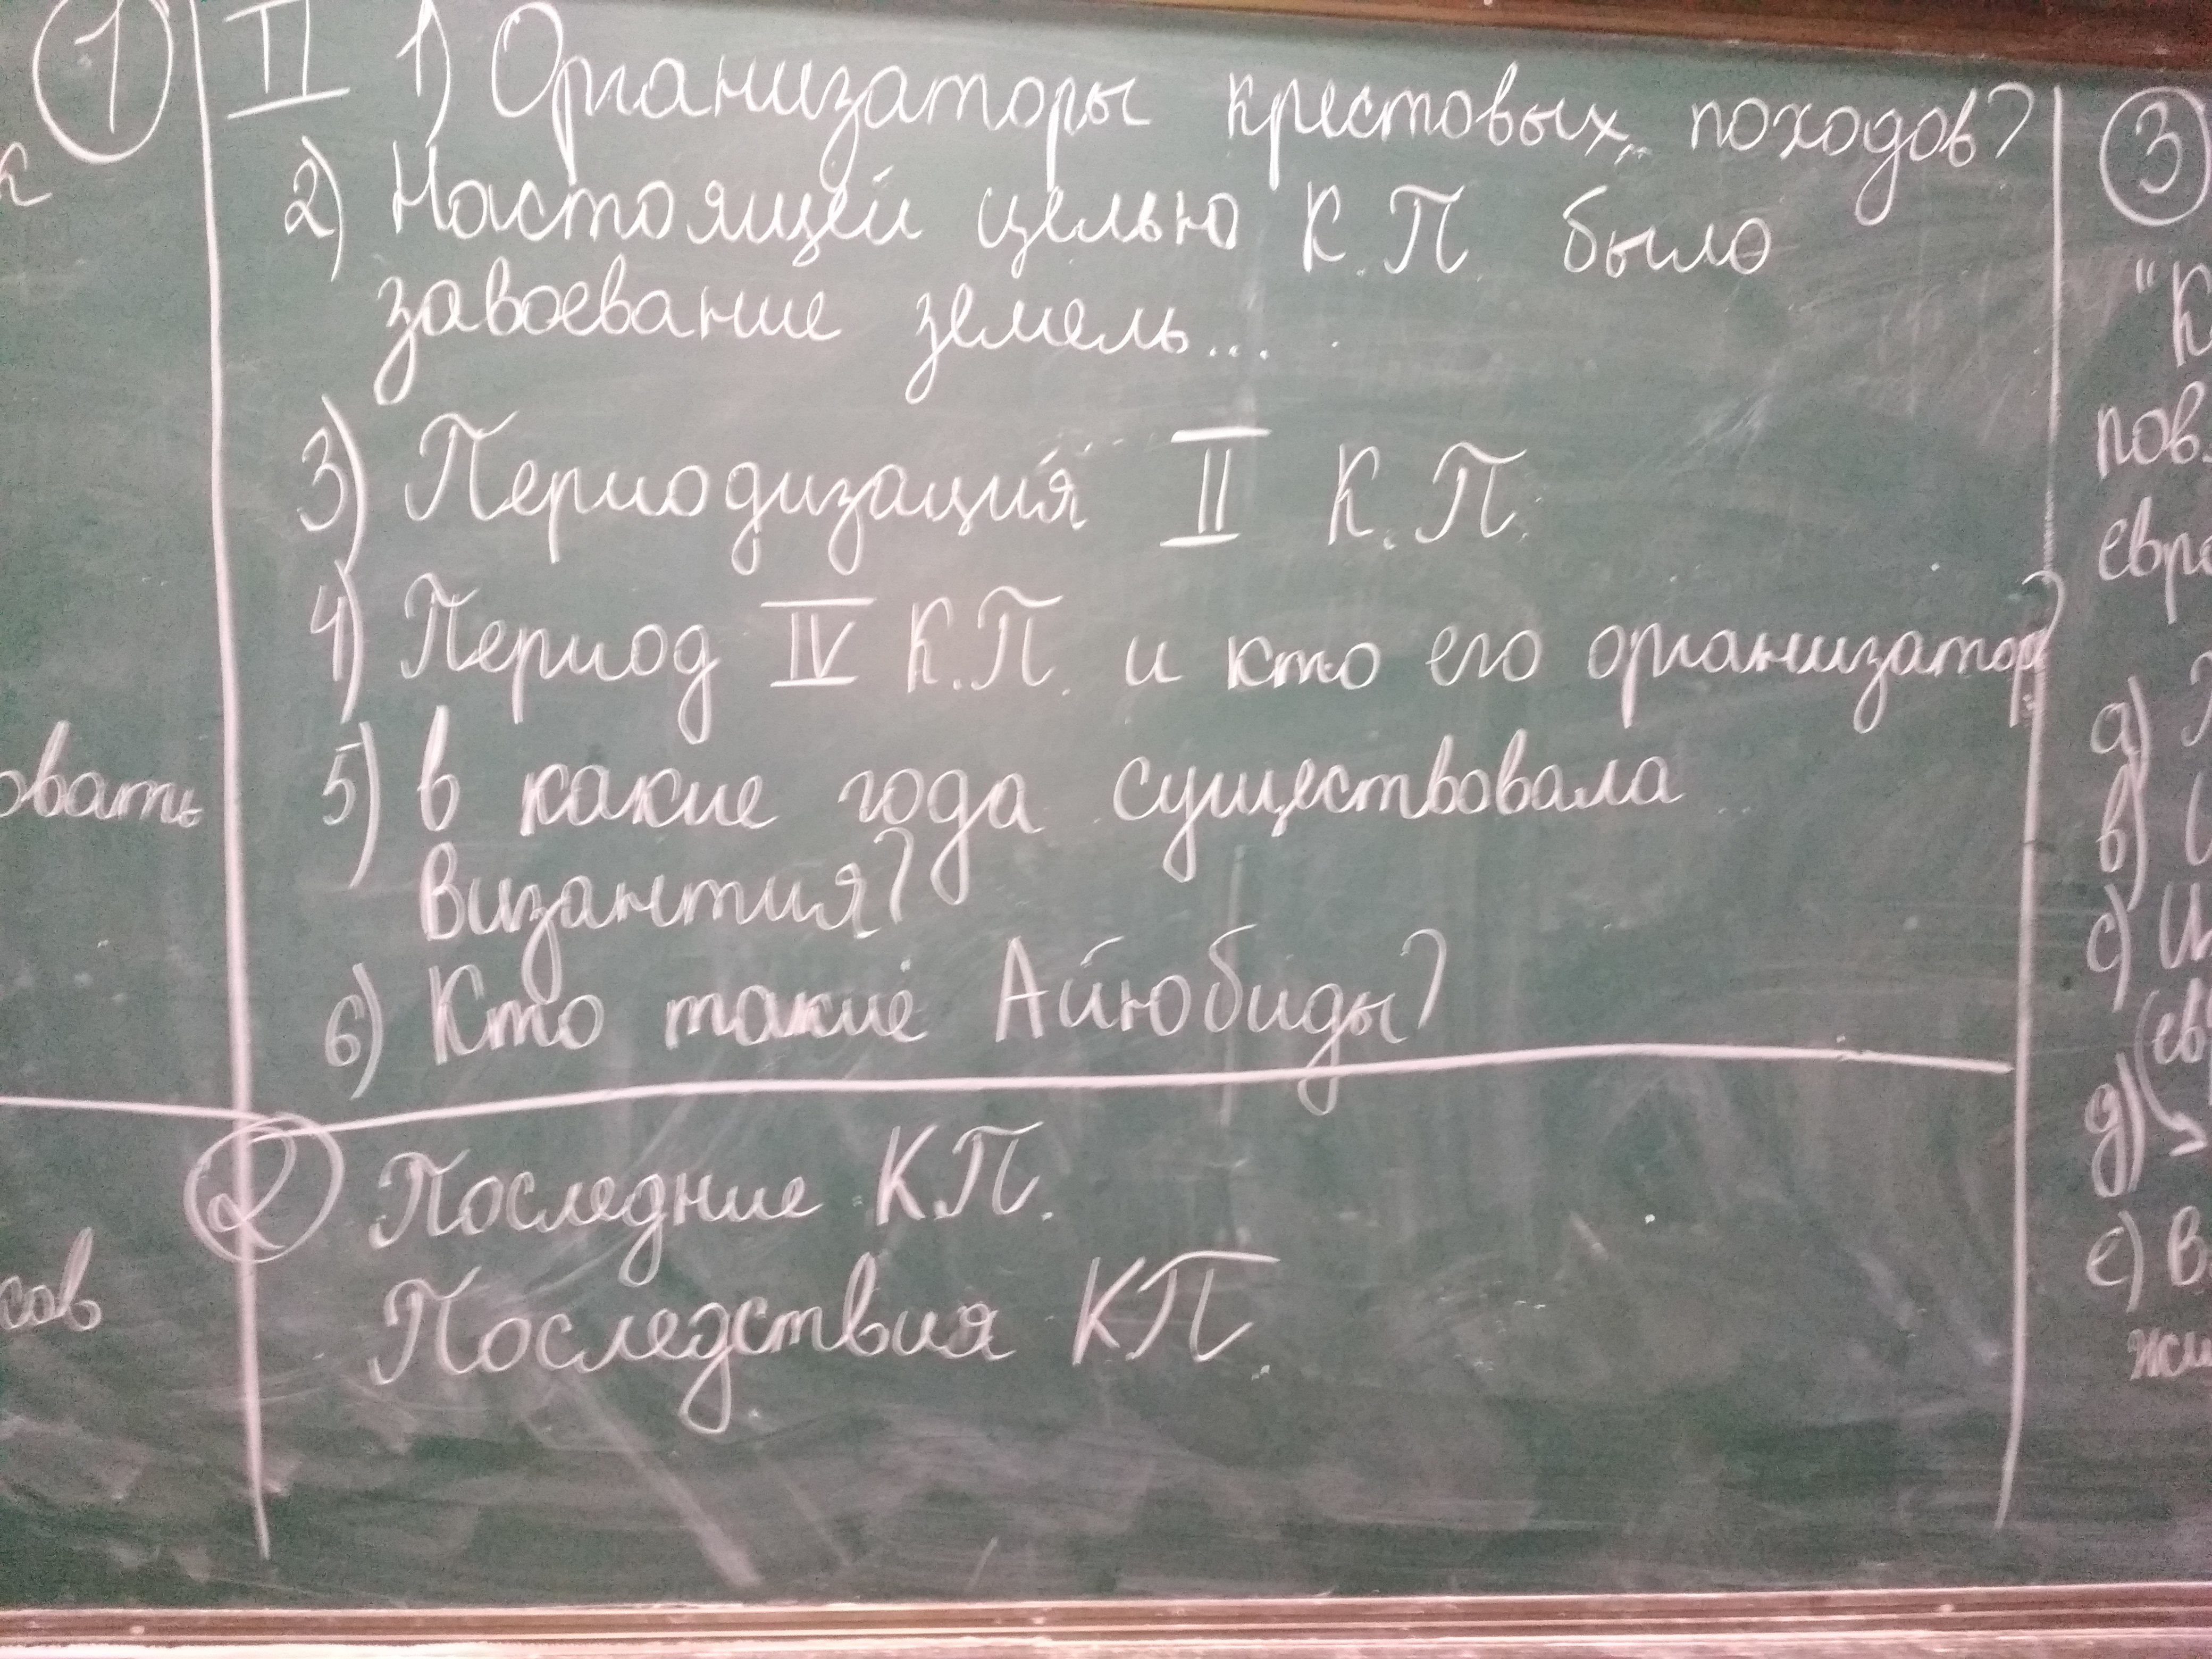 1
II 1) Организаторы крестовых походов?
2) Настоящей целью К.П. было
завоевание земель...
3) Периодизация II К.П.
4) Период IV К.П. и кто его организатор?
5) в какие года существовала
Византия?
6) Кто такие Айюбиды?
2 Последние КП.
Последствия КП.
овать
сов
3
"К
пов
евро
а)
в)
с) И
(ев
д)
е) В
жи